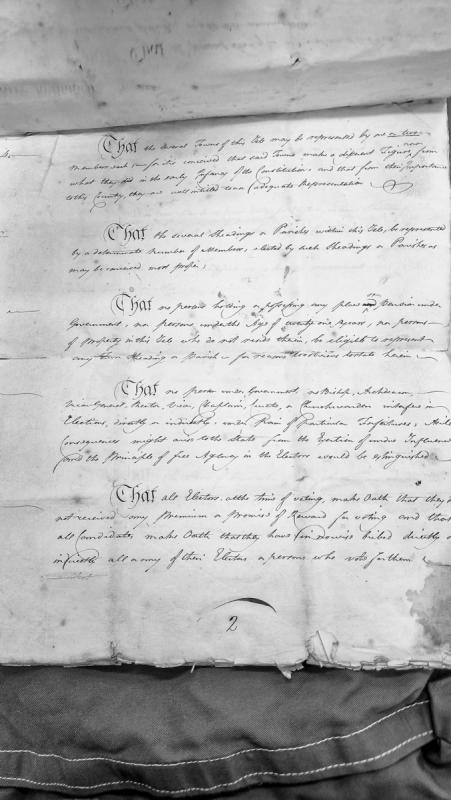 That the several Towns of this Isle may be represented by one or two
Members each — for it is conceived that said Towns make a different Figure now from
what they did in the early Infancy of the Constitution and that from their Importance
to this Country, they are well intitled to an adequate Representation
That the several Sheadings or Parishes within this Isle, be represented
by a determinate number of Members, elected by such Sheadings or Parishes as
may be conceived most proper;
That no person holding or possessing any place or Pension under
Government, nor persons under the Age of twenty one years, nor persons
of Property in this Isle who do not reside therein, be eligible to represent
any Town Sheading or Parish — for reasons
That no person under Government, no Bishop, Archdeacon,
Vicar General, Rector, Vicar, Chaplain, Curate, or Churchwarden interfere in
Elections, directly or indirectly, under Pain of Particular Forfeitures,
Consequences might arise to the State from the Exertion of undue Influence
and the Principle of free Agency in the Electors would be extinguished
That all Electors at the time of voting, make Oath that they
not received any Premium or Promise of Reward for voting and that
all Candidates, make Oath that they have in nowise bribed directly or
indirectly all or any of their Electors or persons who vote for them
2